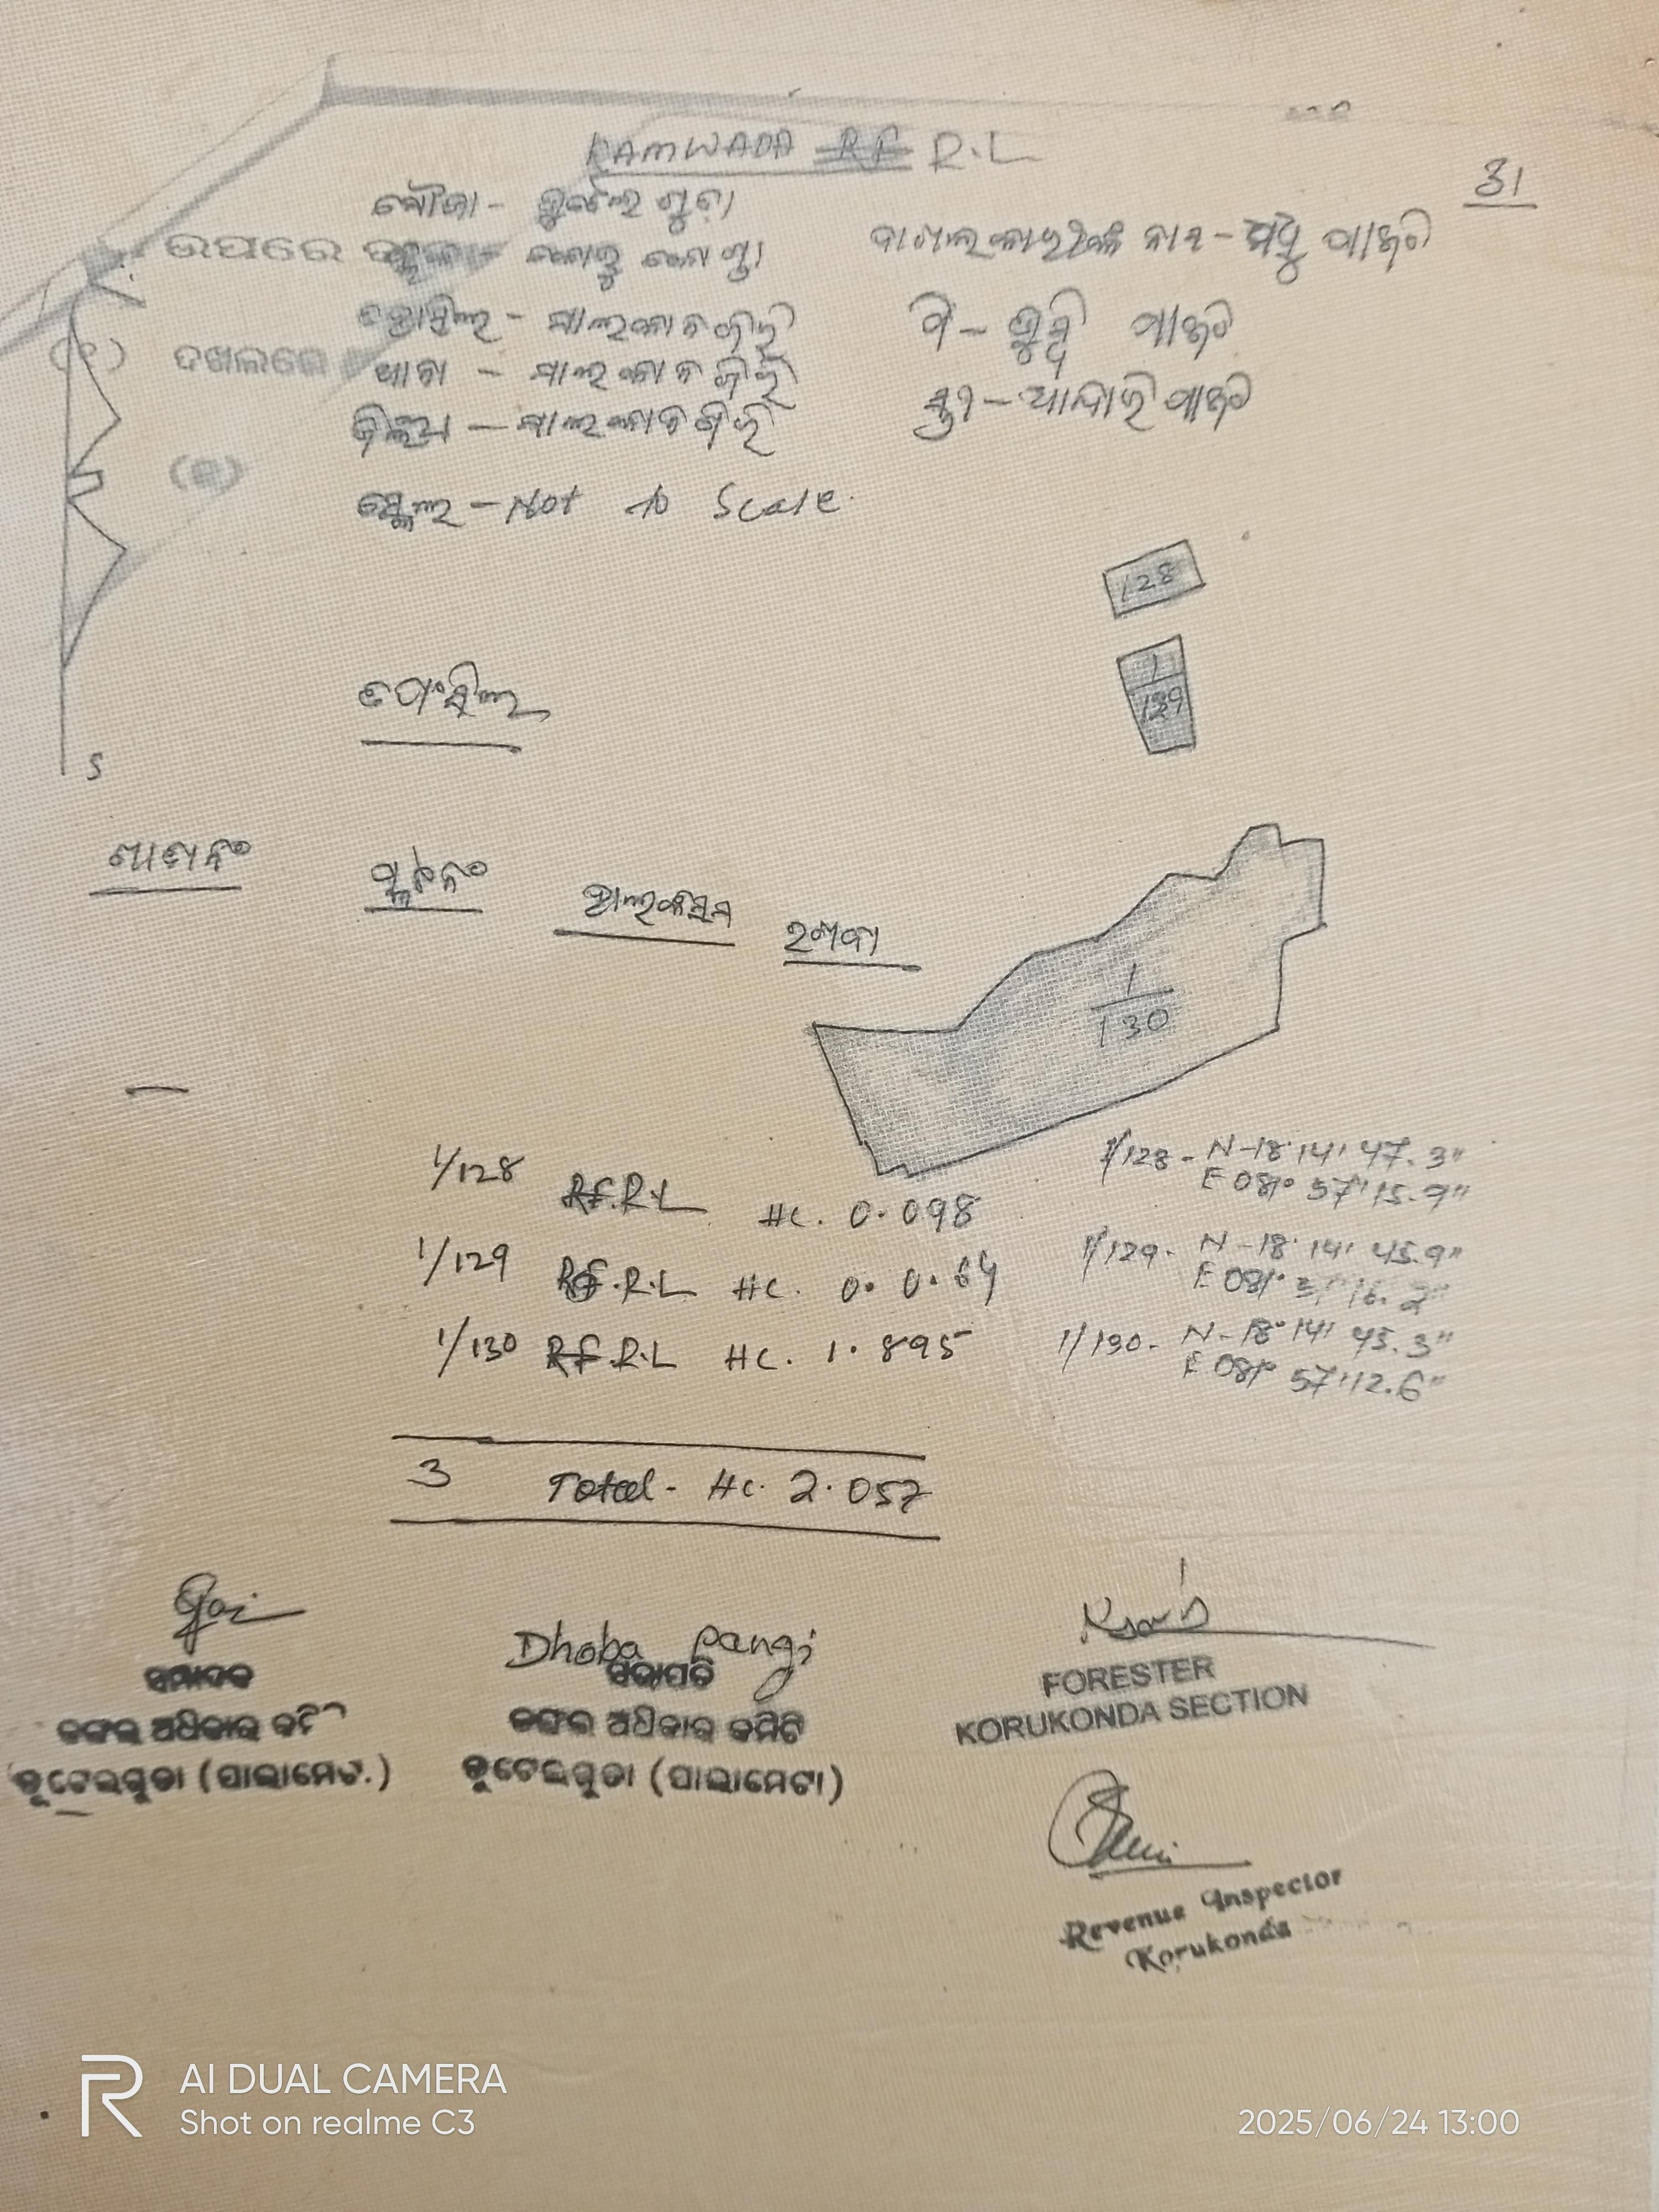 RAMWADA RF R.L
31
ମୌଜା -
ଉପରେ
ଦଖଲକାରୀଙ୍କ ନାମ - ମଧୁ ପାଙ୍ଗି
ତହସିଲ - ମାଲକାନଗିରି
ପି -
ପାଙ୍ଗି
(୧) ଦଖଲରେ
ଥାନା - ମାଲକାନଗିରି
ଜିଲ୍ଲା - ମାଲକାନଗିରି
ପାଙ୍ଗି
ସ୍କେଲ - Not to Scale.
128
1
129
S
ତପସିଲ
ଖାତା ନଂ
ପ୍ଲଟ ନଂ
ରକବା
1
130
—
1/128 RF.R.L HC. 0.098
1/128 - N-18° 14' 47.3"
E 081° 57' 15.9"
1/129 RF.R.L HC. 0.0.64
1/129 - N-18° 14' 45.9"
E 081° 57' 16.2"
1/130 RF.R.L HC. 1.895
1/130 - N-18° 14' 45.3"
E 081° 57' 12.6"
3 Total - HC. 2.057
Dhoba Pangi
ସମ୍ପାଦକ
ଜଙ୍ଗଲ ଅଧିକାର କମିଟି
(ପାଲାମେଟା)
ସଭାପତି
ଜଙ୍ଗଲ ଅଧିକାର କମିଟି
(ପାଲାମେଟା)
FORESTER
KORUKONDA SECTION
Revenue Inspector
Korukonda
AI DUAL CAMERA
Shot on realme C3
2025/06/24 13:00